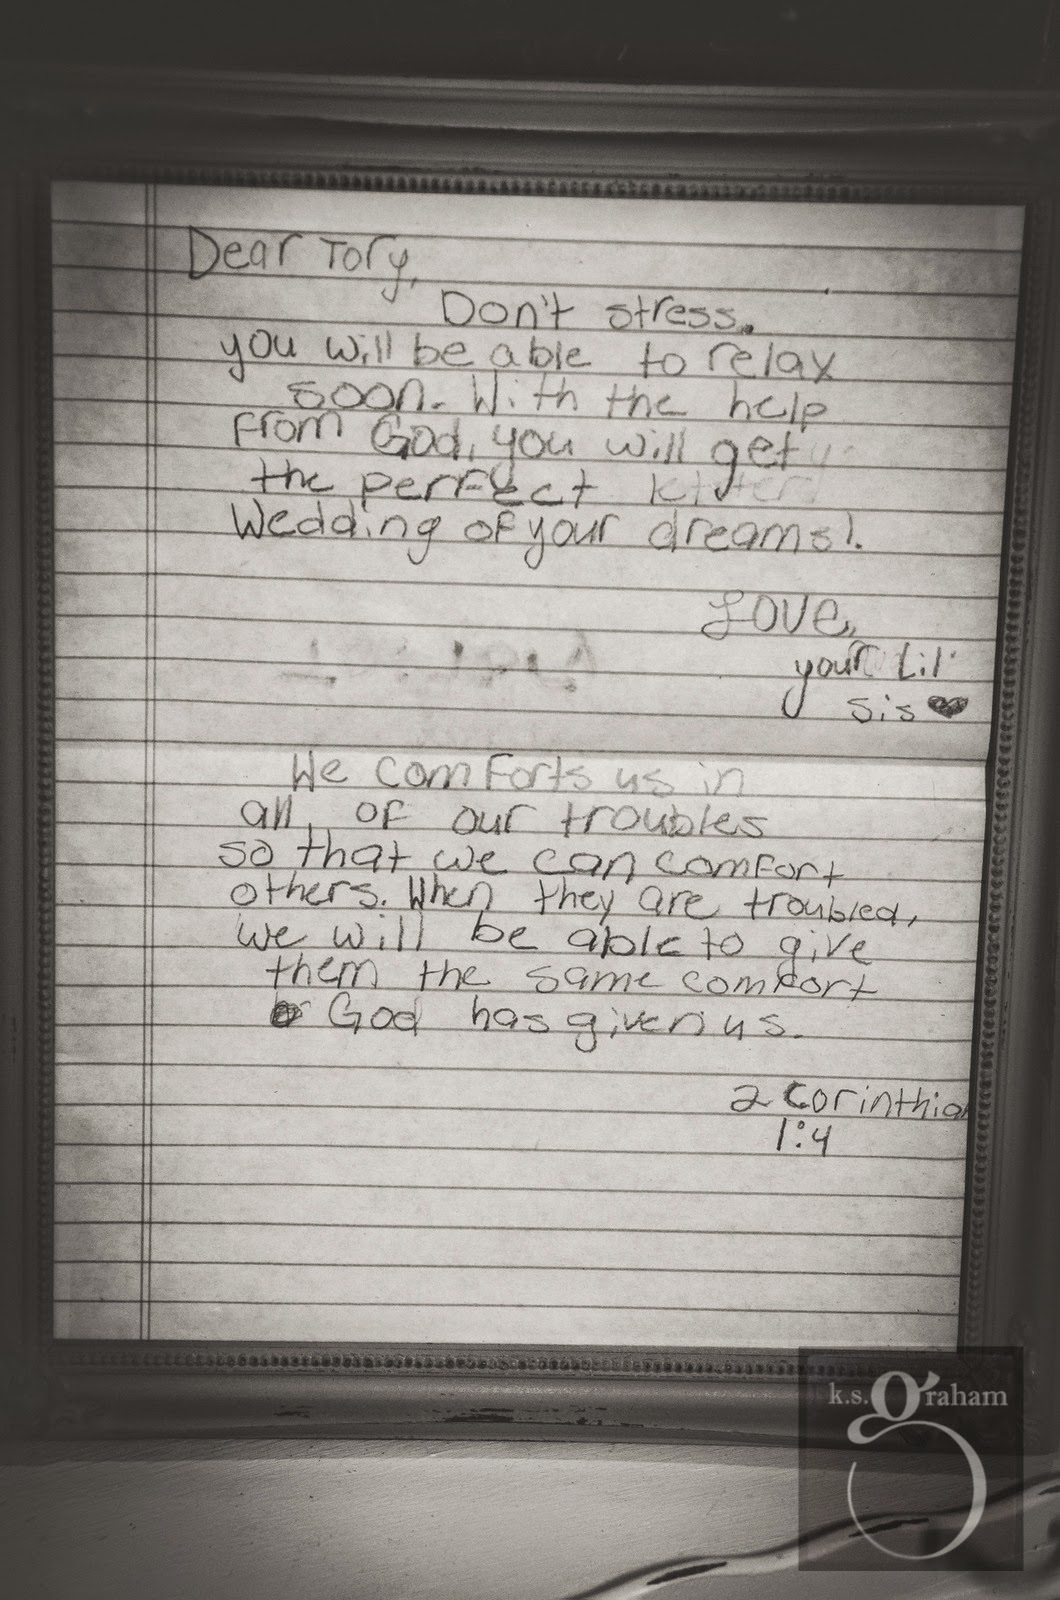 Dear Tory,
Don't stress.
you will be able to relax
soon. With the help
from God, you will get
the perfect
Wedding of your dreams!.
Love,
your Lil'
sis
We comforts us in
all, of our troubles
so that we can comfort
others. When they are troubled,
we will be able to give
them the same comfort
God has given us.
2 Corinthia
1:4
k.s.graham